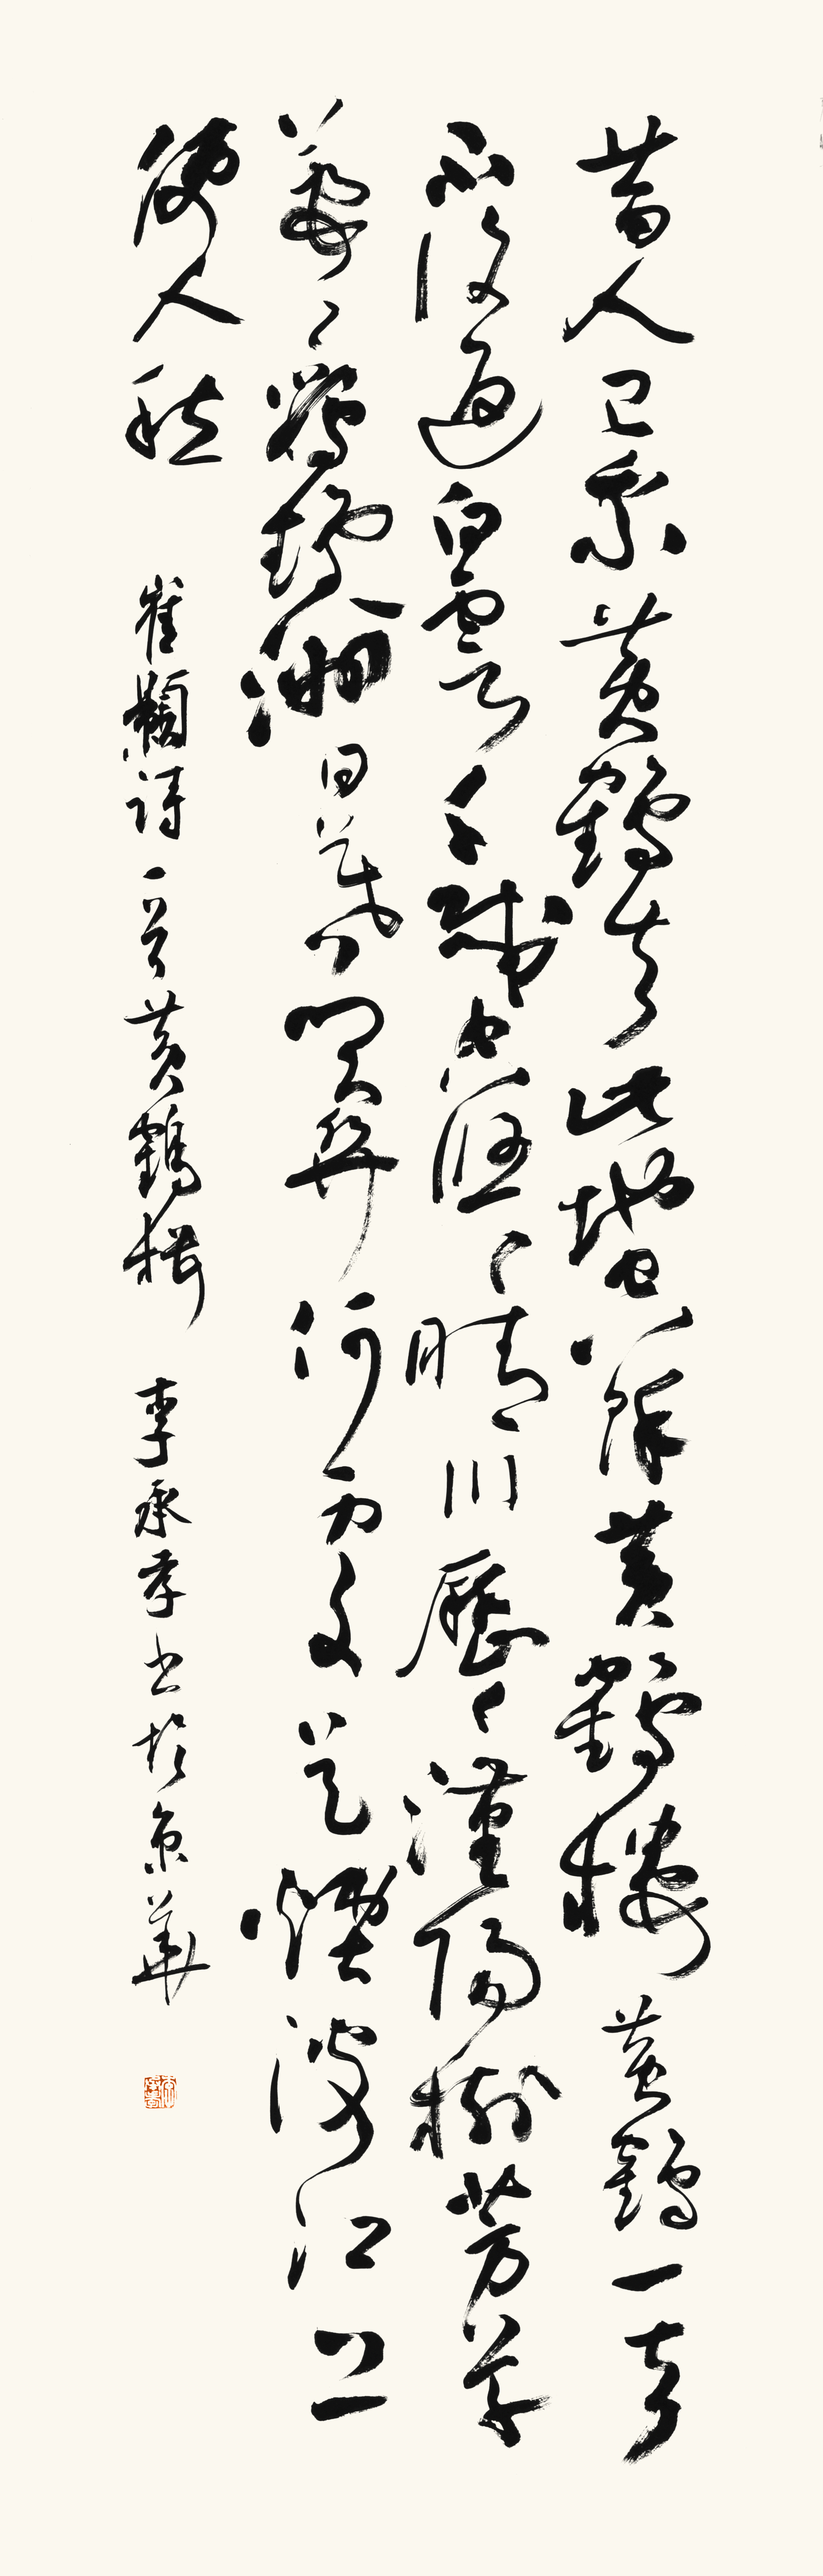 昔人已乘黃鶴去此地空餘黃鶴樓黃鶴一去
不復返白雲千載空悠々晴川歷々漢陽樹芳草
萋々鸚鵡洲日暮鄉關何處是煙波江上
使人愁 崔顥詩一首黃鶴樓 李承孝书於京華